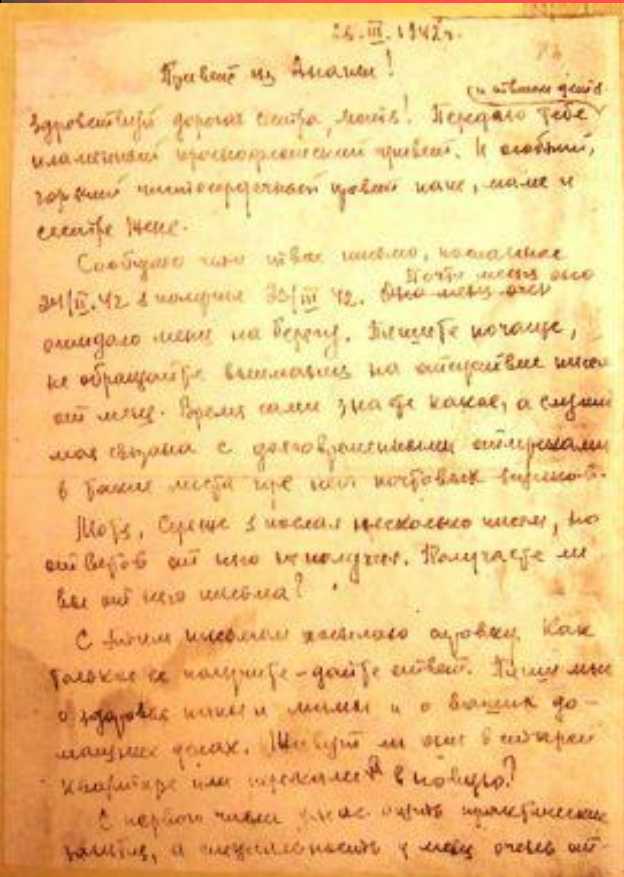 26.III.1942г.
Привет из Анапы!
(и твоим детям
Здравствуй дорогая сестра, Мотя! Передаю тебе
пламенный краснофлотский привет. И особый,
горячий чистосердечный привет папе, маме и
сестре Жене.
Сообщаю что твое письмо, посланное
24/II.42 я получил 23/III 42. Почти месяц оно
ожидало меня на берегу. Пишите почаще,
не обращайте внимания на отсутствие писем
от меня. Время сами знаете какое, а служба
моя связана с долговременными отлучками
в такие места где нет почтовых ящиков.
Мотя, Сереже я послал несколько писем, но
ответов от него не получил. Получаете ли
вы от него письма?
С этим письмом посылаю справку. Как
только ее получите - дайте ответ. Пиши мне
о здоровье папы и мамы и о ваших до-
машних делах. Живут ли они в старой
квартире или переехали в новую?
С первого числа у нас опять практические
занятия, а специальность у меня очень от-